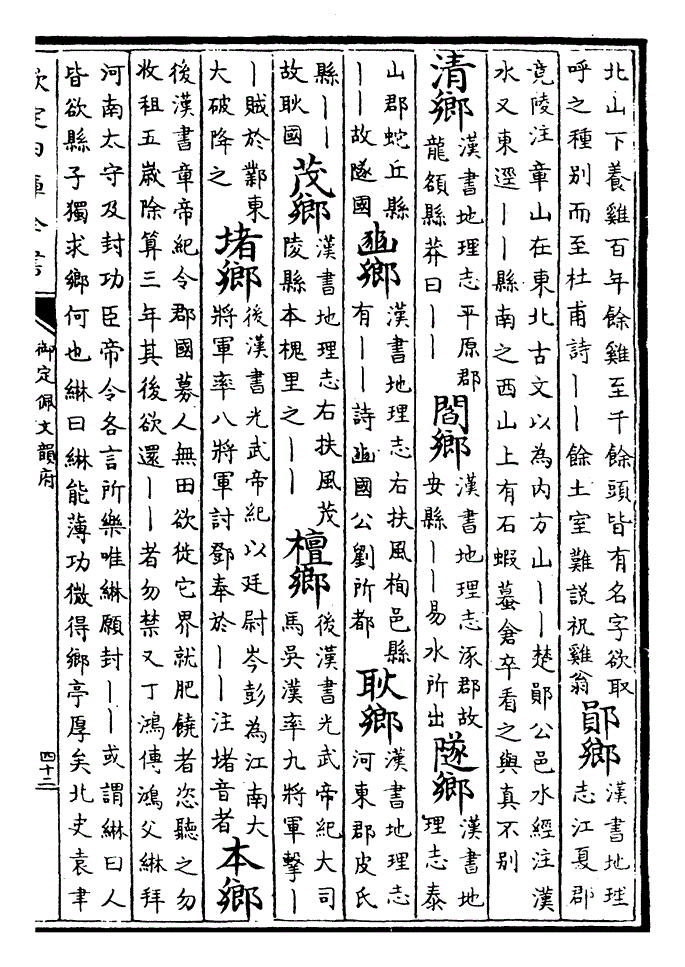 北山下養雞百年餘雞至千餘頭皆有名字欲取
呼之種別而至杜甫詩丨丨餘土室難説祝雞翁
鄖鄉
漢書地理
志江夏郡
竟陵注章山在東北古文以為内方山丨丨楚鄖公邑水經注漢
水又東逕丨丨縣南之西山上有石蝦蟇倉卒看之與真不别
清鄉
漢書地理志平原郡
龍頟縣莽曰丨丨
閻鄉
漢書地理志涿郡故
安縣丨丨易水所出
隧鄉
漢書地
理志泰
山郡蛇丘縣
丨丨故隧國
豳鄉
漢書地理志右扶風栒邑縣
有丨丨詩豳國公劉所都
耿鄉
漢書地理志
河東郡皮氏
縣丨丨
故耿國
茂鄉
漢書地理志右扶風茂
陵縣本槐里之丨丨
檀鄉
後漢書光武帝紀大司
馬吳漢率九將軍擊丨
丨賊於鄴東
大破降之
堵鄉
後漢書光武帝紀以廷尉岑彭為江南大
將軍率八將軍討鄧奉於丨丨注堵音者
本鄉
後漢書章帝紀令郡國募人無田欲徙它界就肥饒者恣聽之勿
收租五嵗除算三年其後欲還丨丨者勿禁又丁鴻傳鴻父綝拜
河南太守及封功臣帝令各言所樂唯綝願封丨丨或謂綝曰人
皆欲縣子獨求鄉何也綝曰綝能薄功微得鄉亭厚矣北史袁聿
欽定四庫全書
御定佩文韻府
四十二